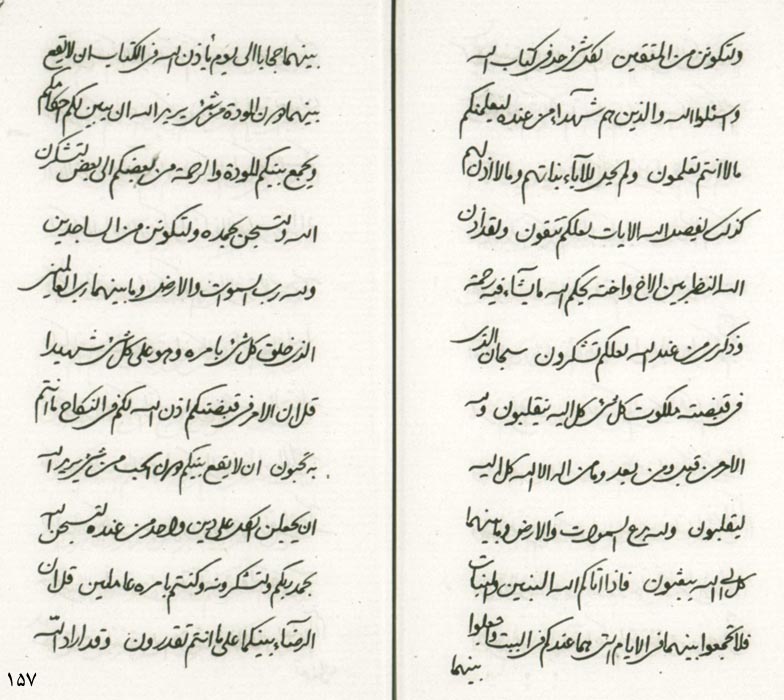 ولتكونن من المتقين لكل شئ حد فى كتاب الله
واسئلوا الله والذين هم شهداء من عنده ليعلمنكم
مالا انتم تعلمون ولم يحل للاباء بناتهم ومالا اذن لهم
كذلك يفصل الله الايات لعلكم تتقون ولقد اذن
الله النظر بين الاخ واخته يحكم الله ما يشاء فيه رحمة
وذكرى من عند الله لعلكم تشكرون سبحان الذى
فى قبضته ملكوت كل شئ كل اليه ينقلبون ولله
الامر من قبل ومن بعد وما من اله الا الله كل اليه
لينقلبون ولله يرجع السموات والارض وما بينهما
كل الى الله يبعثون فاذا اتاكم الله البنين والبنات
فلا تجمعوا بينهما فى الايام التى هما عندكم فى البيت واجعلوا
بينهما
بينهما حجابا الى يوم يأذن الله فى الكتاب ان لا يقع
بينهما دون المودة من شئ يريد الله ان يبين لكم احكامكم
ويجمع بينكم المودة والرحمة من بعضكم الى بعض لتشكرن
الله ولتسبحن بحمده ولتكونن من الساجدين
ولله رب السموات والارض وما بينهما رب العالمين
الذى خلق كل شئ بامره وهو على كل شئ شهيدا
قل ان الامر فى قبضتكم اذن الله لكم فى النكاح ما انتم
به تحبون ان لا يقع بينكم دون الحب من شئ يريد الله
ان يجعلن الكل على دين واحد من عنده لتسبحن الله
بحمد ربكم ولتشكرونه وكنتم بامره عاملين قل ان
الرضاء بينكما على ما انتم تقدرون وقد اراد الله
١٥٧